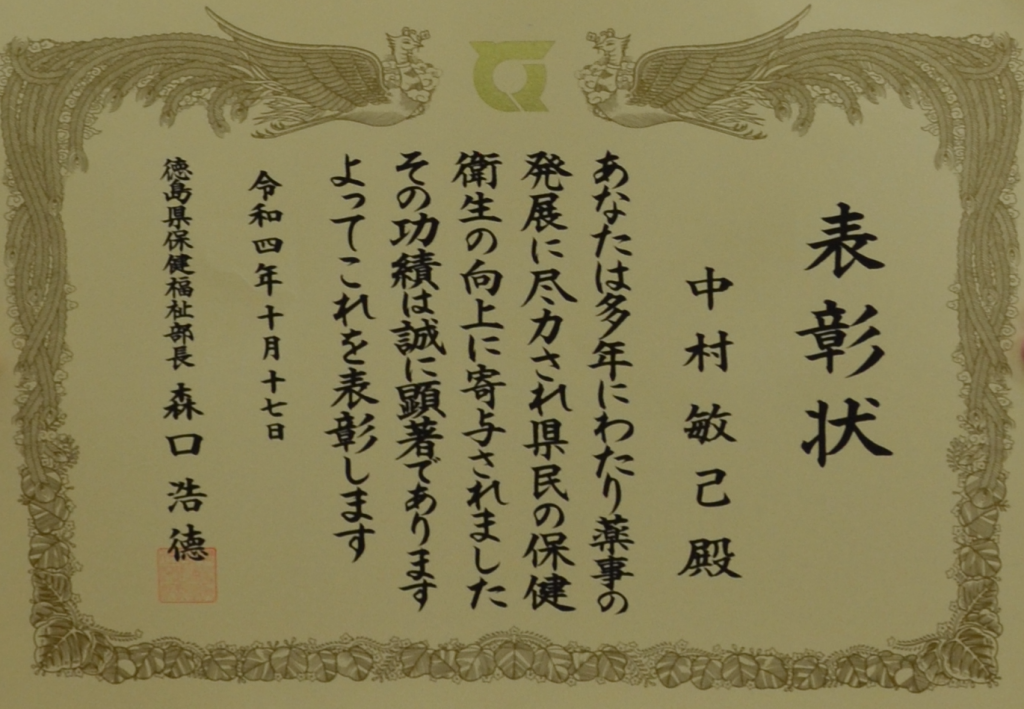 表彰状
中村敏己殿
あなたは多年にわたり薬事の
発展に尽力され県民の保健
衛生の向上に寄与されました
その功績は誠に顕著であります
よってこれを表彰します
令和四年十月十七日
徳島県保健福祉部長 森口浩徳